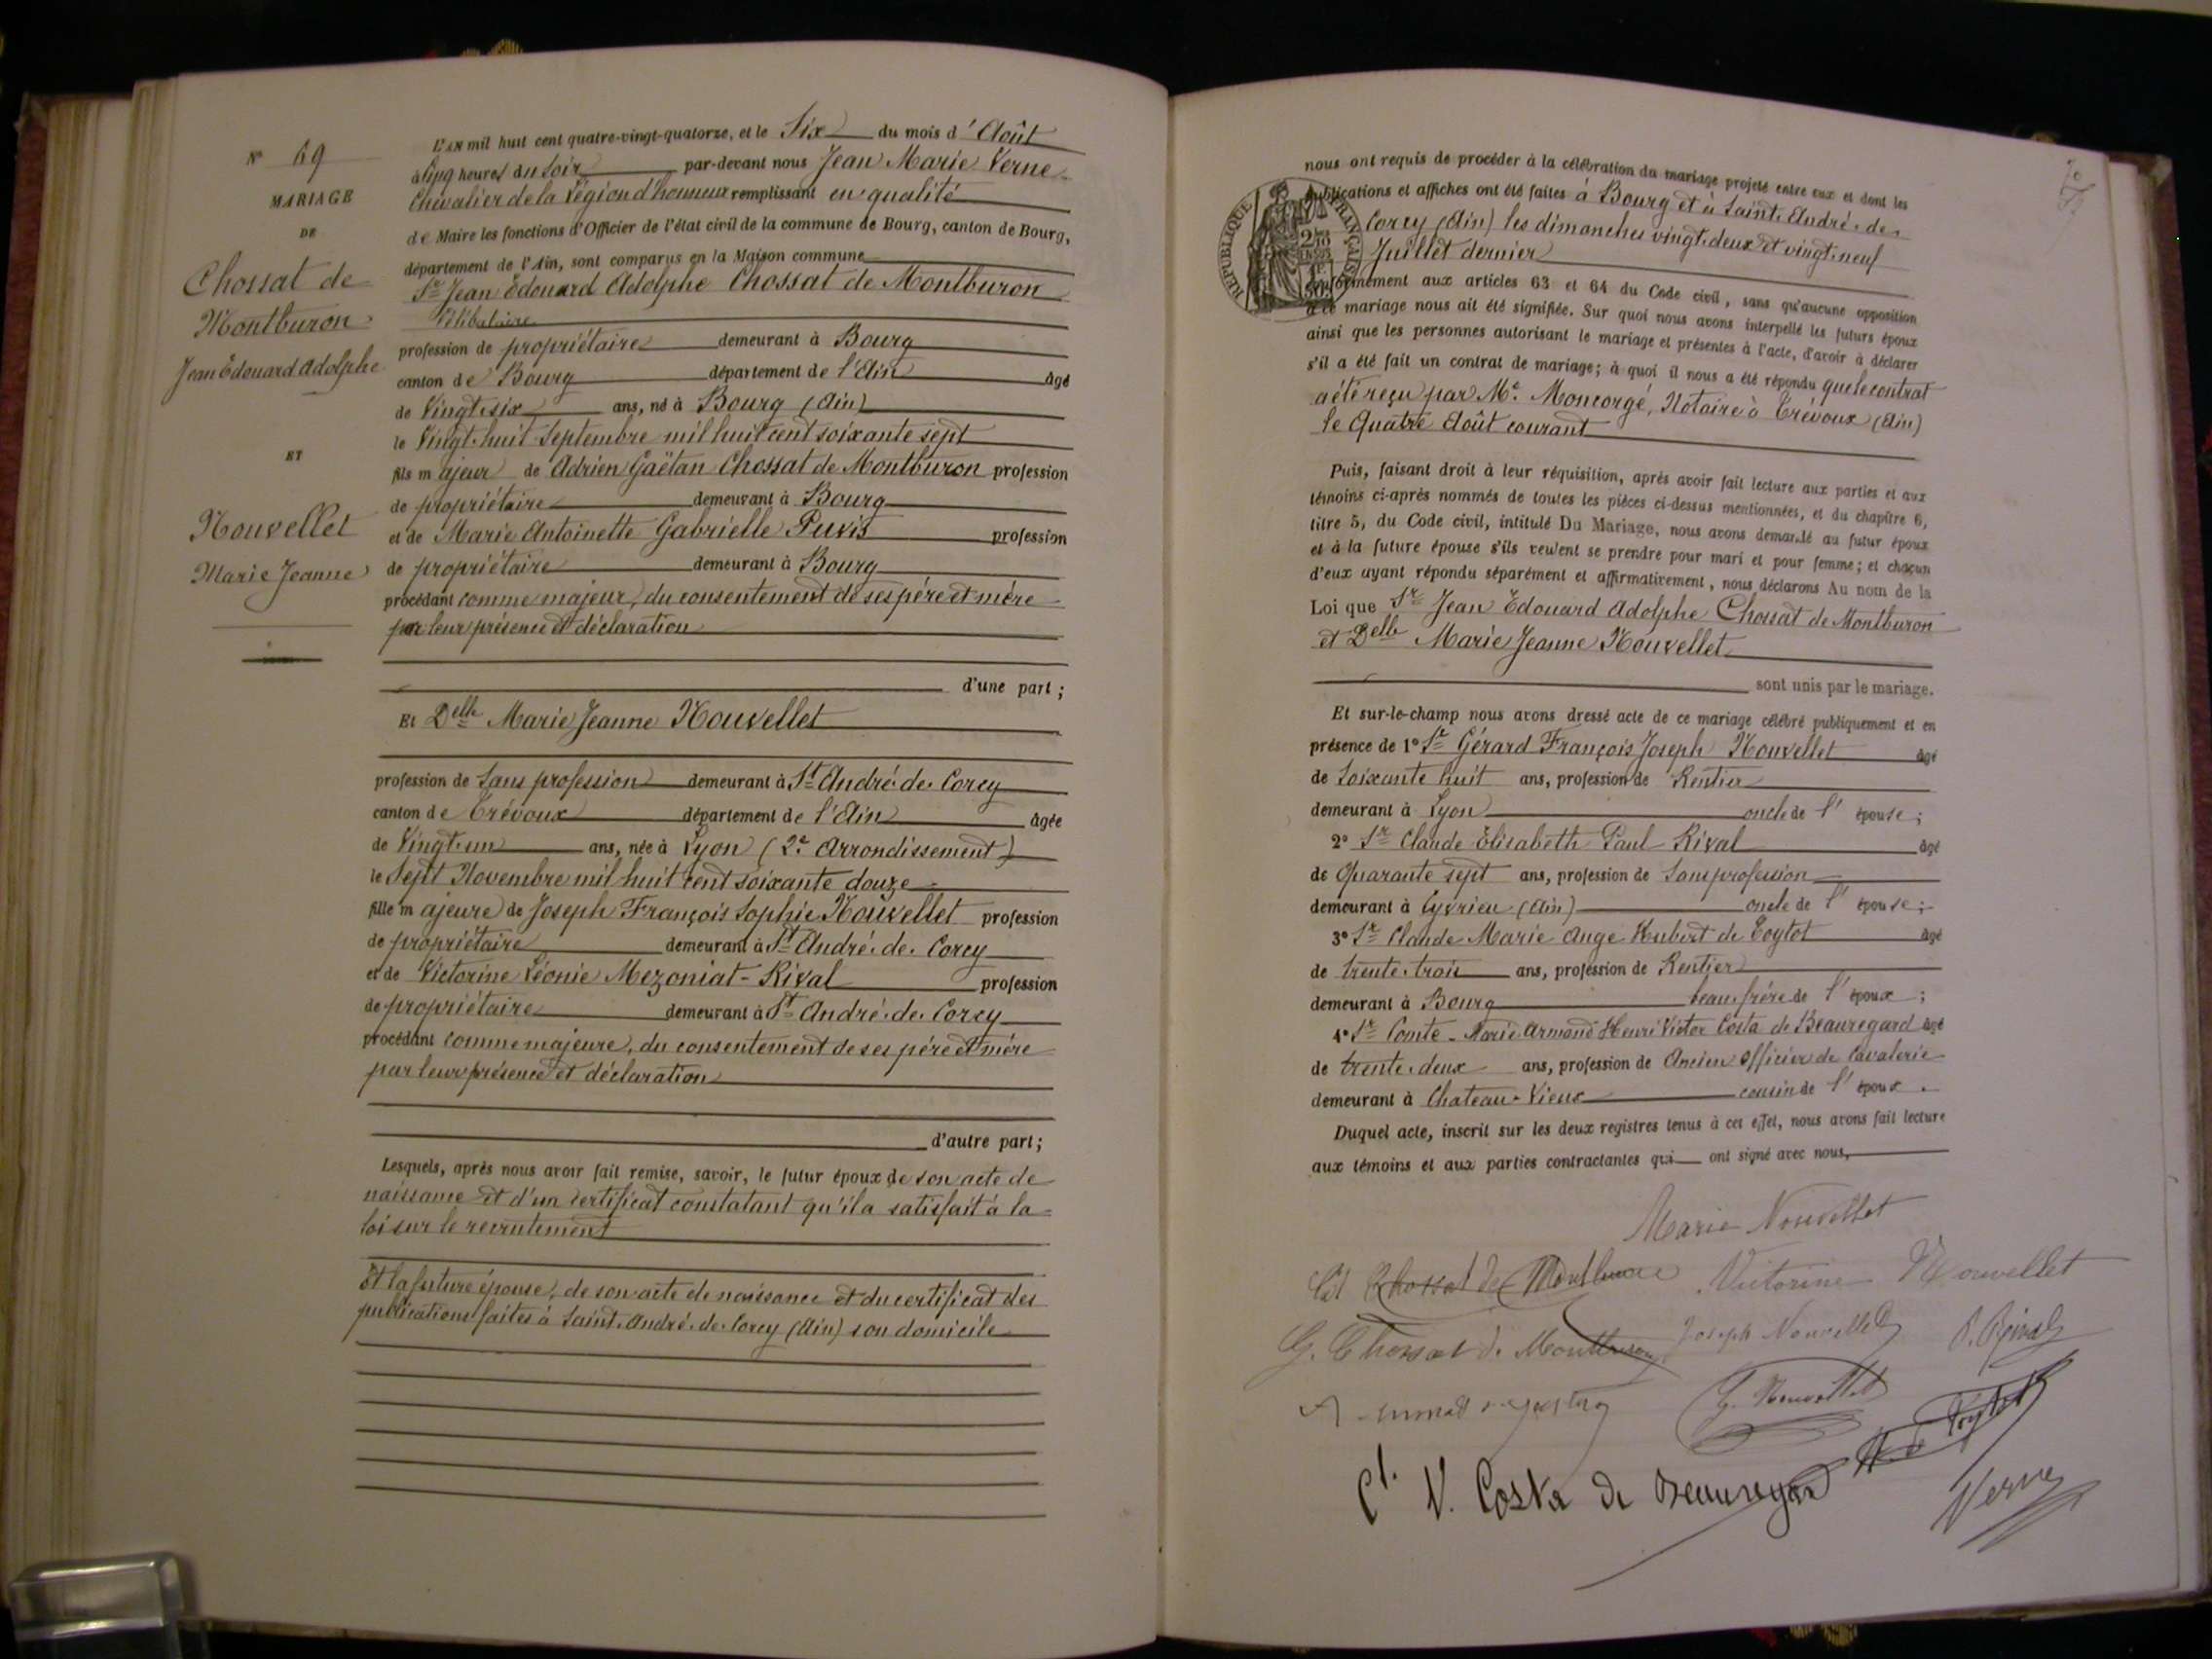 N° 69
MARIAGE
DE
Chossat de
Montburon
Jean Édouard Adolphe
ET
Nouvellet
Marie Jeanne
L'AN mil huit cent quatre-vingt-quatorze, et le Six du mois d'Août
à Cinq heures du soir par-devant nous Jean Marie Verne
Chevalier de la Légion d'honneur remplissant en qualité
de Maire les fonctions d'Officier de l'état civil de la commune de Bourg, canton de Bourg,
département de l'Ain, sont comparus en la Maison commune
Sr Jean Édouard Adolphe Chossat de Montburon
Célibataire
profession de propriétaire demeurant à Bourg
canton de Bourg département de l'Ain âgé
de Vingt-six ans, né à Bourg (Ain)
le Vingt-huit Septembre mil huit cent soixante sept
fils majeur de Adrien Gaëtan Chossat de Montburon profession
de propriétaire demeurant à Bourg
et de Marie Antoinette Gabrielle Puvis profession
de propriétaire demeurant à Bourg
procédant comme majeur, du consentement de ses père et mère
par leur présence et déclaration
d'une part;
Et Delle Marie Jeanne Nouvellet
profession de Sans profession demeurant à St André-de-Corcy
canton de Trévoux département de l'Ain âgée
de Vingt-un ans, née à Lyon (2e Arrondissement)
le Sept Novembre mil huit cent soixante douze
fille majeure de Joseph François Sophie Nouvellet profession
de propriétaire demeurant à St André-de-Corcy
et de Victorine Léonie Mezoniat-Rival profession
de propriétaire demeurant à St André-de-Corcy
procédant comme majeure, du consentement de ses père et mère
par leur présence et déclaration
d'autre part;
Lesquels, après nous avoir fait remise, savoir, le futur époux de son acte de
naissance et d'un certificat constatant qu'il a satisfait à la
loi sur le recrutement
Et la future épouse, de son acte de naissance et du certificat des
publications faites à Saint-André-de-Corcy (Ain) son domicile
nous ont requis de procéder à la célébration du mariage projeté entre eux et dont les
publications et affiches ont été faites à Bourg et à Saint-André-de-
Corcy (Ain) les dimanches vingt-deux et vingt-neuf
Juillet dernier
RÉPUBLIQUE FRANÇAISE
conformément aux articles 63 et 64 du Code civil, sans qu'aucune opposition
à ce mariage nous ait été signifiée. Sur quoi nous avons interpellé les futurs époux
ainsi que les personnes autorisant le mariage et présentes à l'acte, d'avoir à déclarer
s'il a été fait un contrat de mariage; à quoi il nous a été répondu que le contrat
a été reçu par Me Moncorgé, Notaire à Trévoux (Ain)
le Quatre Août courant
Puis, faisant droit à leur réquisition, après avoir fait lecture aux parties et aux
témoins ci-après nommés de toutes les pièces ci-dessus mentionnées, et du chapitre 6,
titre 5, du Code civil, intitulé Du Mariage, nous avons demandé au futur époux
et à la future épouse s'ils veulent se prendre pour mari et pour femme; et chacun
d'eux ayant répondu séparément et affirmativement, nous déclarons Au nom de la
Loi que Sr Jean Édouard Adolphe Chossat de Montburon
et Delle Marie Jeanne Nouvellet
sont unis par le mariage.
Et sur-le-champ nous avons dressé acte de ce mariage célébré publiquement et en
présence de 1° Sr Gérard François Joseph Nouvellet âgé
de Soixante huit ans, profession de Rentier
demeurant à Lyon oncle de l'épouse;
2° Sr Claude Élisabeth Paul Rival âgé
de Quarante sept ans, profession de Sans profession
demeurant à Cyvrieu (Ain) oncle de l'épouse;
3° Sr Claude Marie Ange Hubert de Toytot âgé
de trente-trois ans, profession de Rentier
demeurant à Bourg beau-frère de l'époux;
4° Sr Comte Marie Armand Henri Victor Costa de Beauregard âgé
de trente-deux ans, profession de Ancien Officier de Cavalerie
demeurant à Chateau-Vieux cousin de l'époux.
Duquel acte, inscrit sur les deux registres tenus à cet effet, nous avons fait lecture
aux témoins et aux parties contractantes qui ont signé avec nous,
Marie Nouvellet
Chossat de Montburon Victorine Nouvellet
G. Chossat de Montburon Joseph Nouvellet P. Rival
G. Nouvellet
H. de Toytot
Ct. V. Costa de Beauregard
Verne